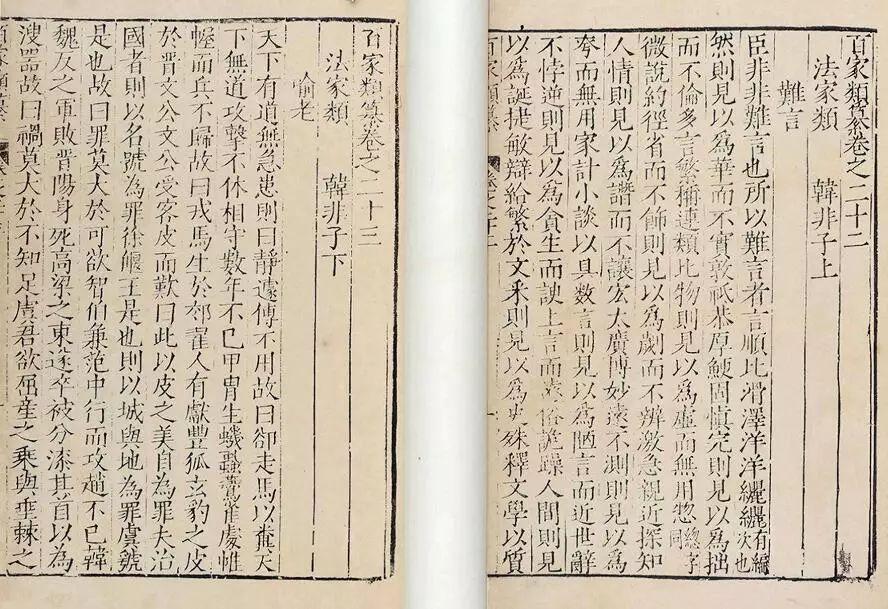 百家類纂卷之二十二
法家類　韓非子上
難言
臣非非難言也所以難言者言順比滑澤洋洋纚纚有編次也
然則見以爲華而不實敦祗恭厚鯁固愼完則見以爲拙
而不倫多言繁稱連類比物則見以爲虛而無用惣總字同
微說約徑省而不飾則見以爲劌而不辨激急親近探知
人情則見以爲譖而不讓宏大廣博妙遠不測則見以爲
夸而無用家計小談以具數言則見以爲陋言而近世辭
不悖逆則見以爲貪生而諛上言而遠俗詭躁人間則見
以爲誕捷敏辯給繁於文采則見以爲史殊釋文學以質
百家類纂
一
百家類纂卷之二十三
法家類　韓非子下
喻老
天下有道無急患則曰靜遽傳不用故曰卻走馬以糞天
下無道攻擊不休相守數年不已甲冑生蟣蝨鷰雀處帷
幄而兵不歸故曰戎馬生於郊翟人有獻豐狐玄豹之皮
於晉文公文公受客皮而歎曰此以皮之美自為罪夫治
國者則以名號為罪徐偃王是也則以城與地為罪虞虢
是也故曰罪莫大於可欲智伯兼范中行而攻趙不已韓
魏反之軍敗晉陽身死高梁之東遂卒被分漆其首以為
溲器故曰禍莫大於不知足虞君欲屈產之乘與垂棘之
百家類纂
一